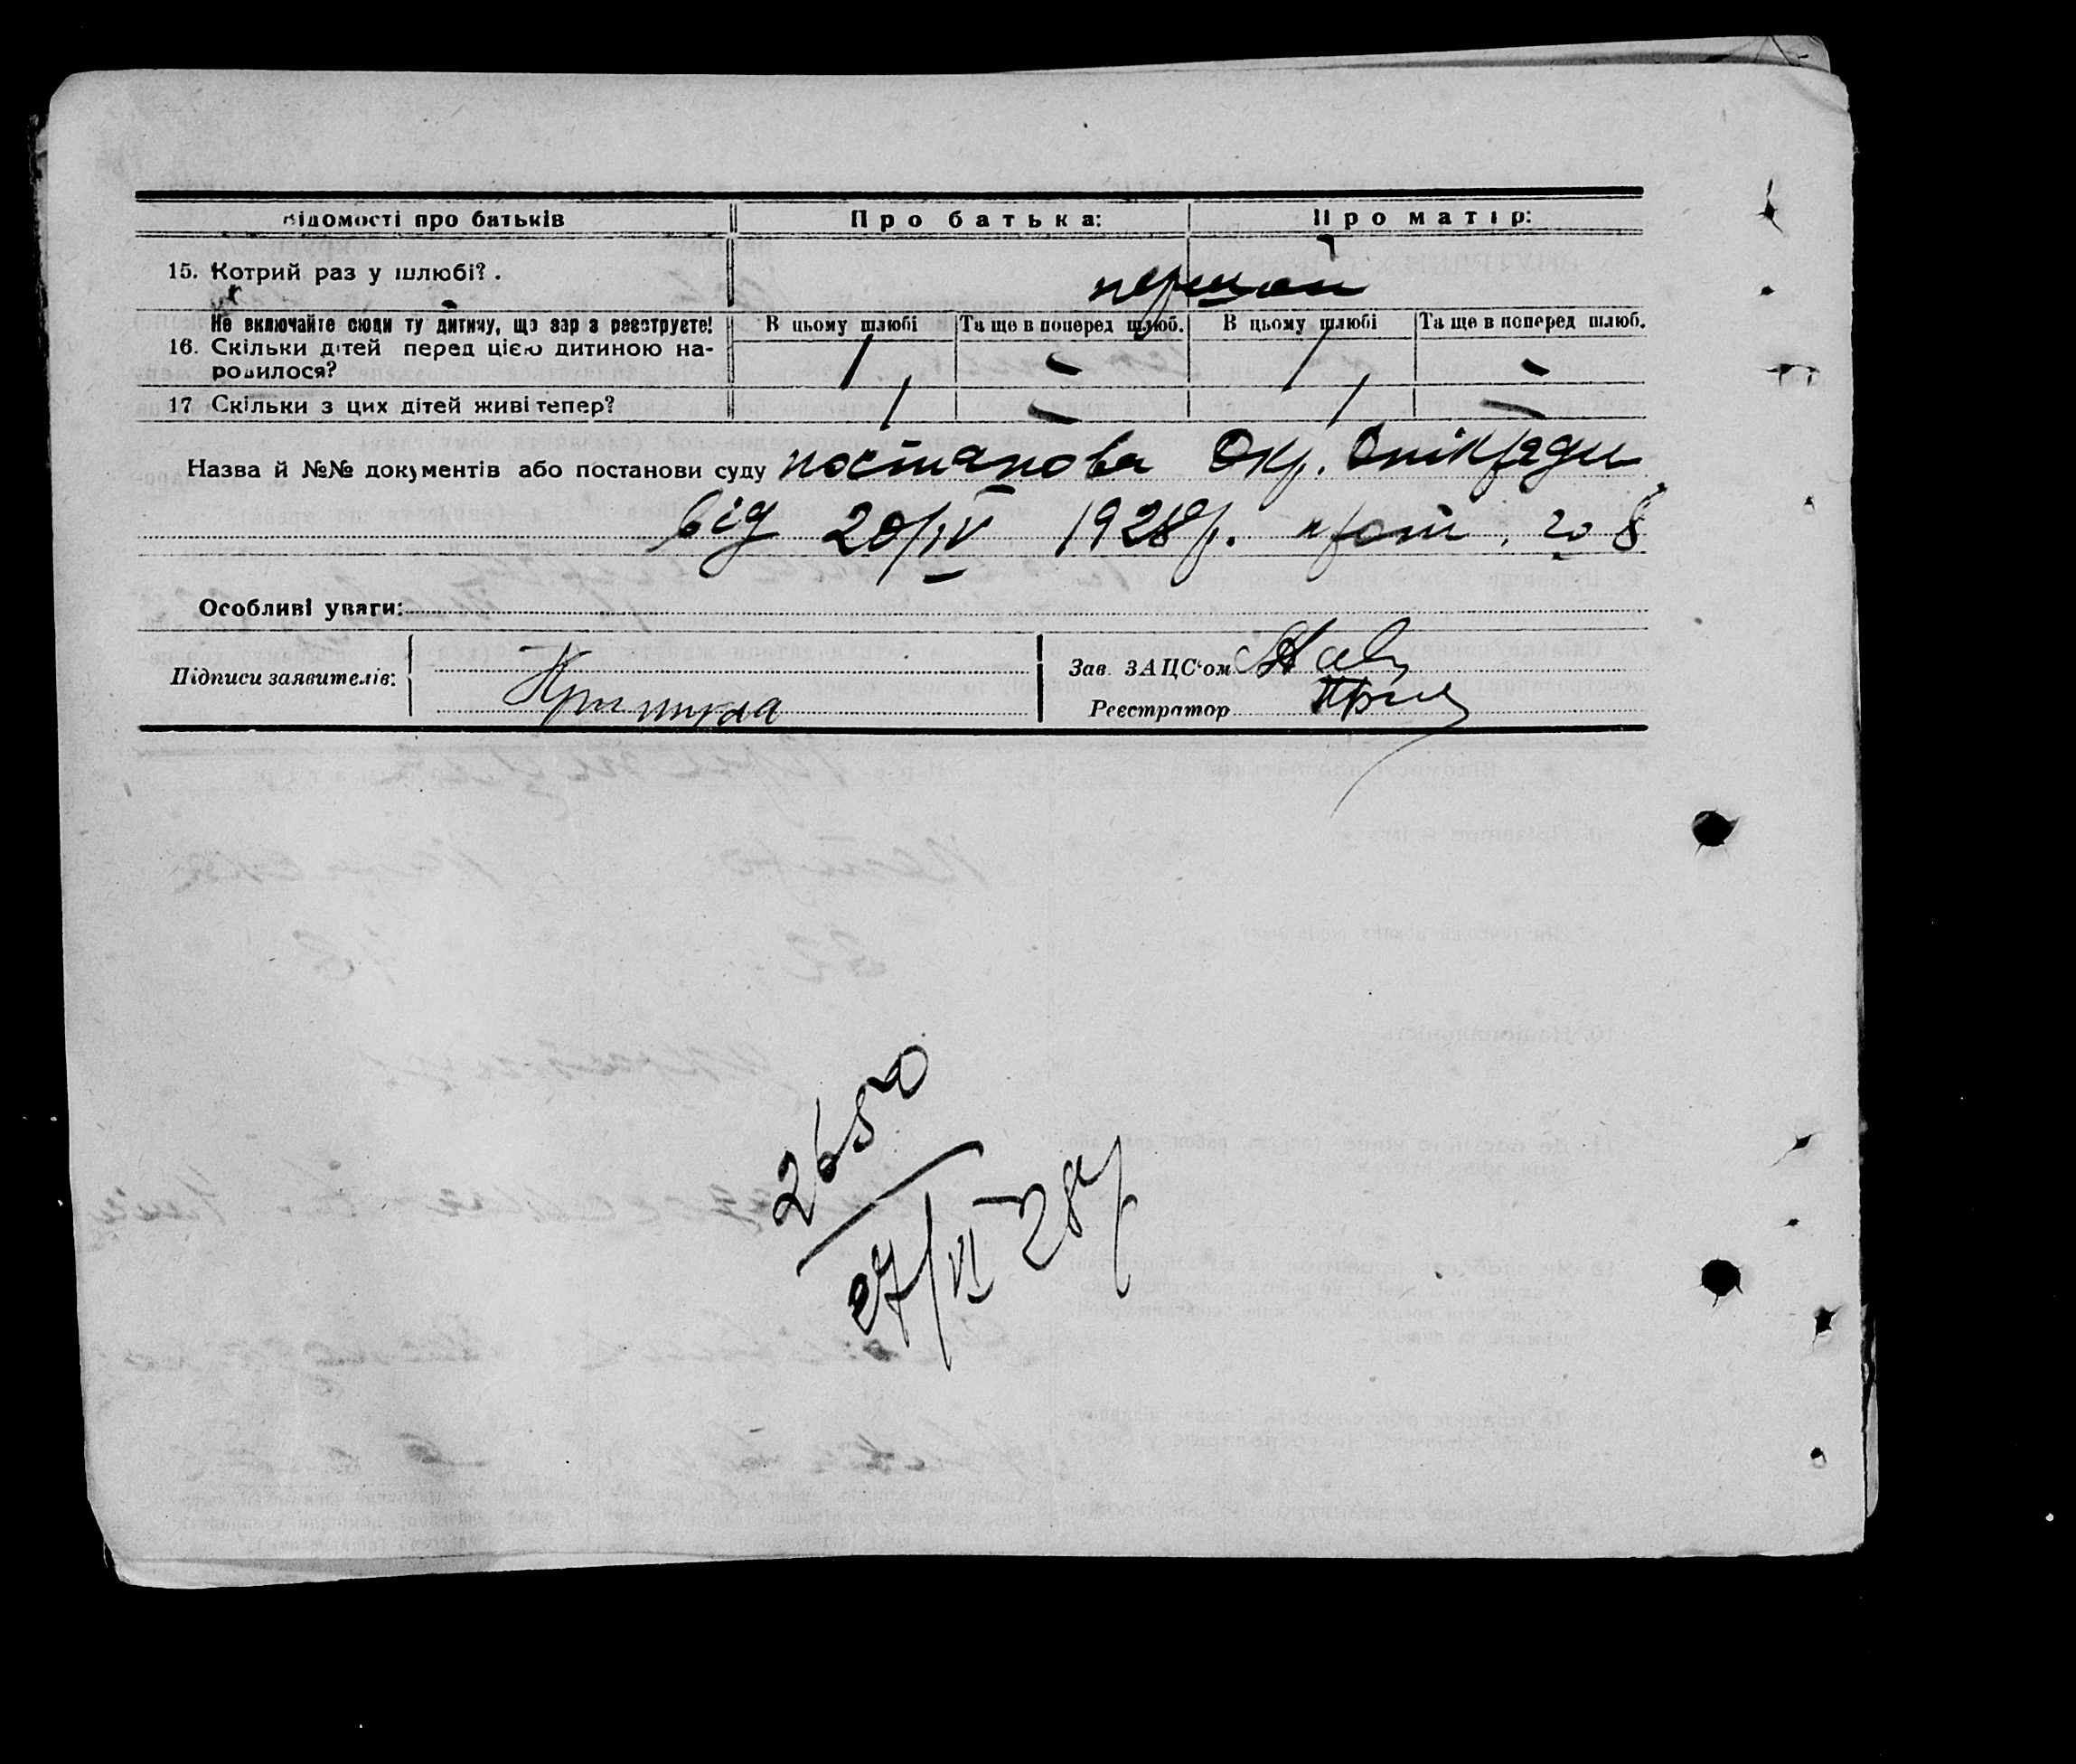 Відомості про батьків Про батька: Про матір:
15. Котрий раз у шлюбі? . перший
Не включайте сюди ту дитину, що зараз реєструєте! В цьому шлюбі Та ще в поперед шлюб. В цьому шлюбі Та ще в поперед шлюб.
16. Скільки дітей перед цією дитиною на-
родилося? 1 - 1 -
17 Скільки з цих дітей живі тепер? 1 - 1 -
Назва й №№ документів або постанови суду постанова Окр. Опікради
від 20/IV 1928р. прот. 8
Особливі уваги:
Підписи заявителів:
Зав. ЗАЦС'ом
Реєстратор
2650
27/VI 28р